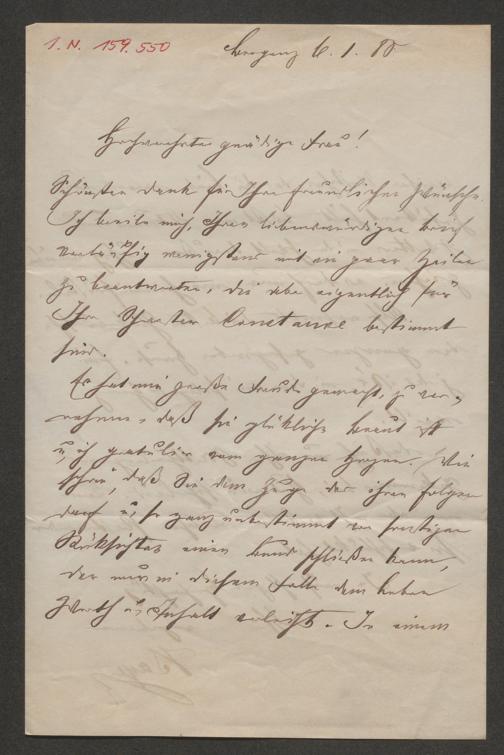 I. N. 159.550
Bregenz 6. 1. 80
Hochverehrte gnädige Frau!
Schönsten Dank für Ihre freundlichen Wünsche.
Ich beeile mich, Ihren liebenswürdigen Brief
vorläufig wenigstens mit ein paar Zeilen
zu beantworten, die aber eigentlich für
Ihre Schwester Constanze bestimmt
sind.
Es hat mir große Freude gemacht, zu ver-
nehmen, daß sie glückliche Braut ist
u. ich gratulire vom ganzen Herzen. Wie
schön, daß Sie dem Zuge des Herzens folgen
darf u. so ganz unbestimmt von sonstigen
Rücksichten einen Bund schließen kann,
der nur in diesem Falle dem Leben
Werth u. Inhalt verleiht. In einem